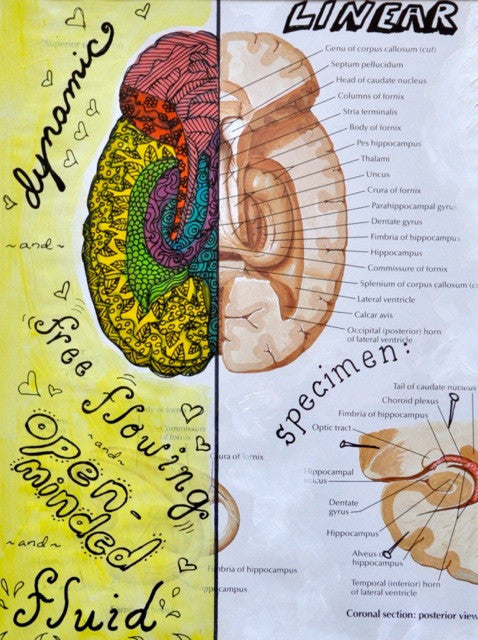 LINEAR
dynamic
~and~
free flowing
~and~
open-
minded
~and~
fluid
Superior
Genu of corpus callosum (cut)
Septum pellucidum
Head of caudate nucleus
Columns of fornix
Stria terminalis
Body of fornix
Pes hippocampus
Thalami
Uncus
Crura of fornix
Parahippocampal gyrus
Dentate gyrus
Fimbria of hippocampus
Hippocampus
Commissure of fornix
Splenium of corpus callosum
Lateral ventricle
Calcar avis
Occipital (posterior) horn
of lateral ventricle
specimen:
Tail of caudate nucleus
Choroid plexus
Fimbria of hippocampus
Optic tract
Hippocampal
sulcus
Dentate
gyrus
Hippocampus
Alveus of
hippocampus
Temporal (inferior) horn
of lateral ventricle
Coronal section: posterior view
Body of fornix
Commissure
of fornix
Crura of fornix
Fimbria of hippocampus
Hippocampus